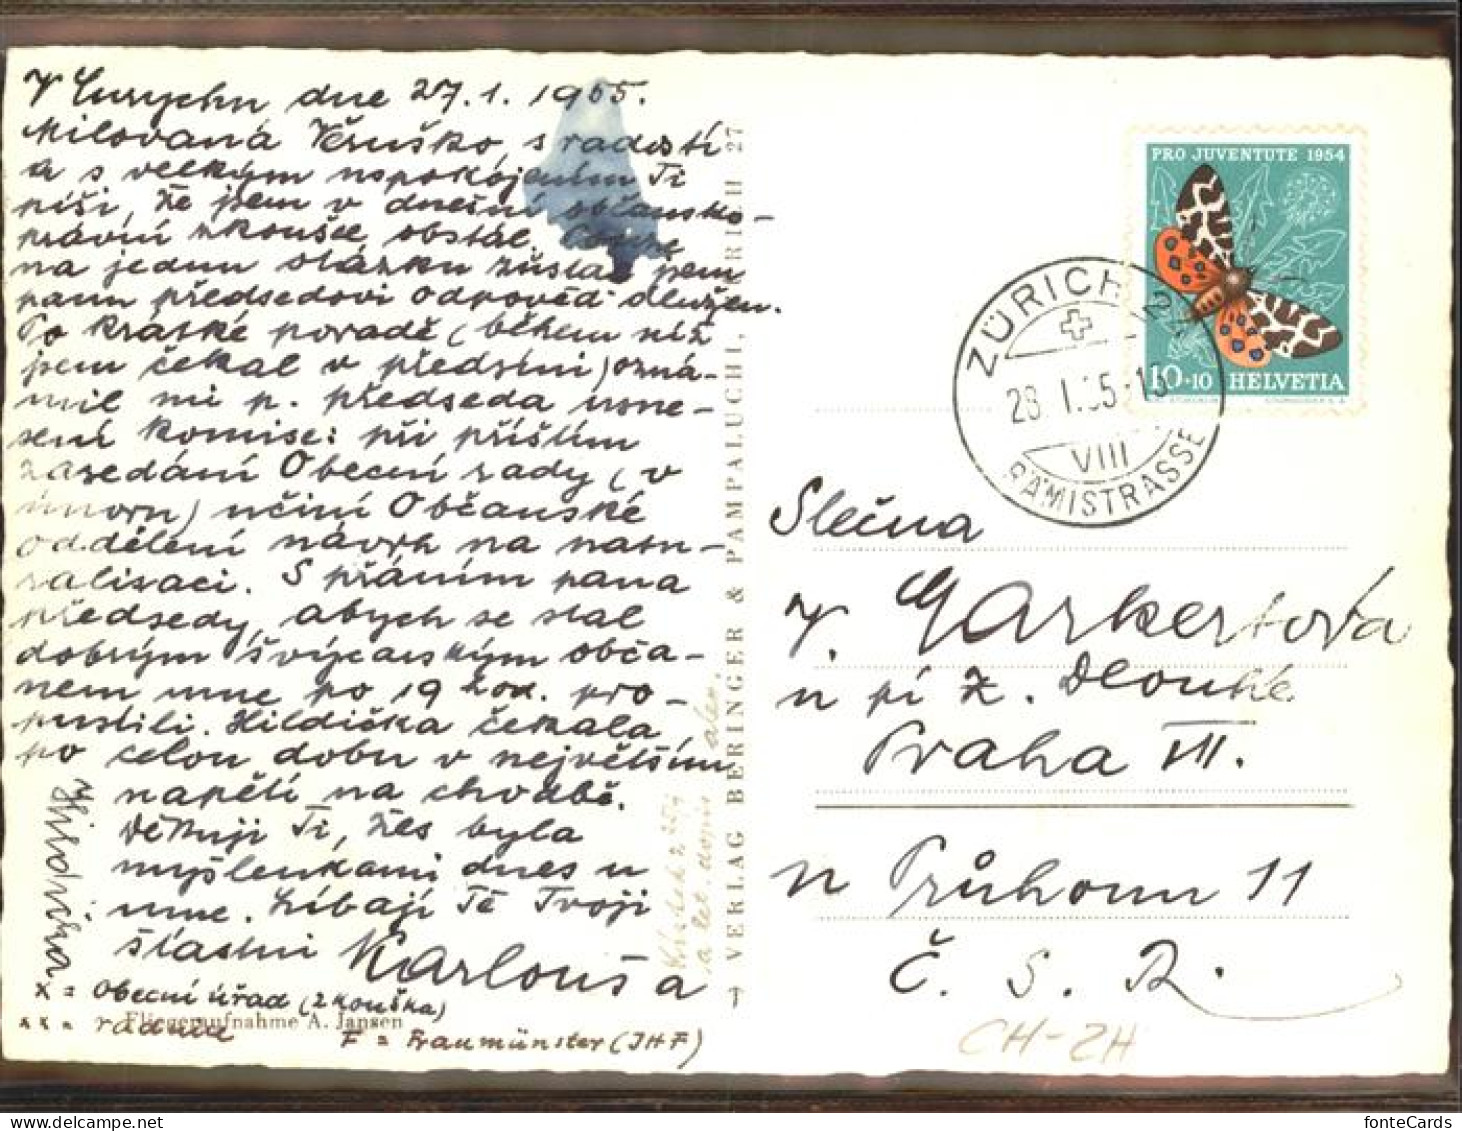 V Curychu, dne 27.1.1955.
Milovaná Věruško, s radostí
a s velkým uspokojením Ti
píši, že jsem v dnešní občansko-
právní zkoušce obstál.
na jednu otázku zůstal jsem
panu předsedovi odpověď dlužen.
Po krátké poradě (během níž
jsem čekal v předsíni) ozná-
mil mi p. předseda usne-
sení komise: při příštím
zasedání Obecní rady (v
únoru) učiní Občanské
oddělení návrh na natu-
ralisaci. S přáním pana
předsedy, abych se stal
dobrým švýcarským obča-
nem mne po 19 hod. pro-
pustili. Hildička čekala
po celou dobu v největším
napětí na chodbě.
Děkuji Ti, žes byla
myšlenkami dnes u
mne. Líbají Tě Tvoji
šťastní Karlouš a
Hildička
x = Obecní úřad (zkouška)
xx = radnice
F = Fraumünster (JHF)
Fliegeraufnahme A. Jansen
→ VERLAG BERINGER & PAMPALUCHI, ZÜRICH 27
PRO JUVENTUTE 1954
10+10 HELVETIA
ZÜRICH
28.I.55
VIII
RÄMISTRASSE
Slečna
V. Markertová
u pí Z. Dlouhé
Praha VII.
u Průhonu 11
Č. S. R.
CH-ZH
fonteCards on www.delcampe.net
fonteCards